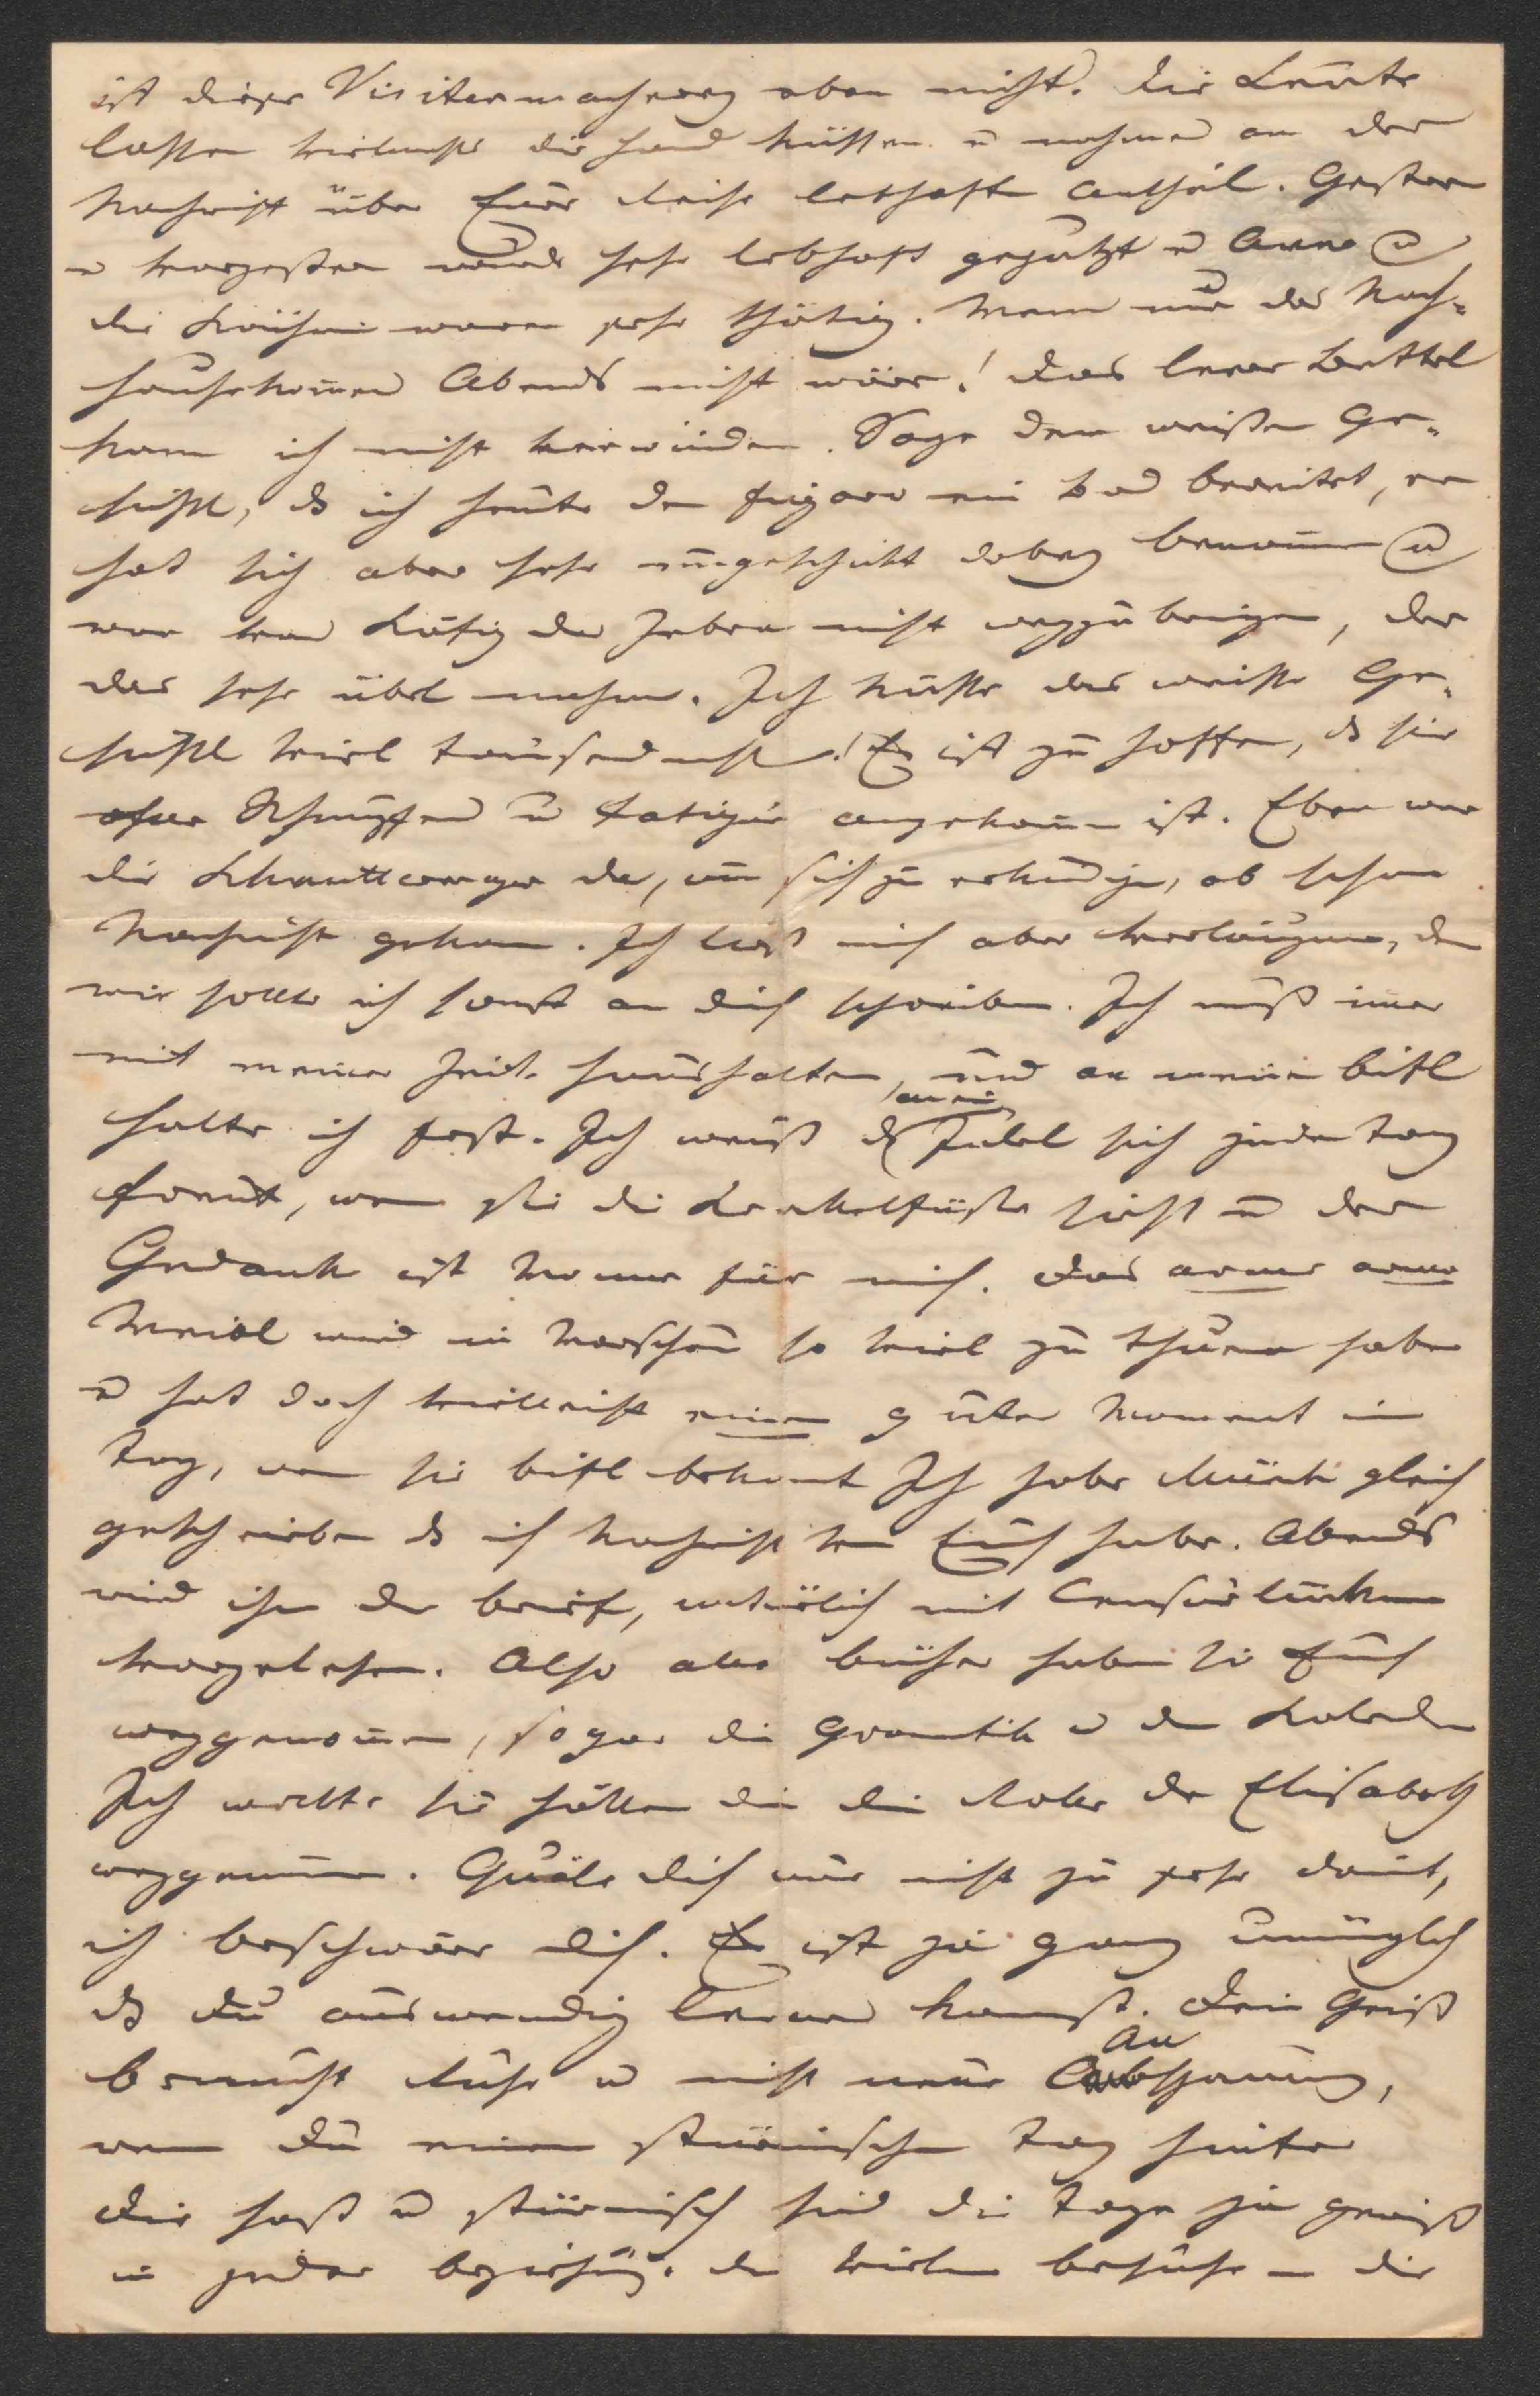 ist diese Visitenmacherey eben nicht. Die Leute
lassen vielmals die Hand küssen u nehmen an der
Nachricht über Euere Reise lebhaften Antheil. Gestern
u vorgestern wurde sehr lebhaft geputzt u Anna u
die Köchin waren sehr thätig. Wenn nur das Nach-
hausekom̅en Abends nicht wäre! Das leere Bettel
kann ich nicht verwinden. Sage dem weißen Ge-
sichtl, dß ich heute den Figaro ein Bad bereitet, er
hat sich aber sehr ungeschickt dabey benom̅en u
war vom Käfig der Zebra nicht wegzubringen, der
das sehr übel nahm. Ich küsse das weiße Ge-
sichtl viel tausendmal! Es ist zu hoffen, dß sie
ohne Schnupfen u Fatigue angekom̅en ist. Eben war
die da, um sich zu erkundigen, ob schon
Nachricht gekom̅en. Ich ließ mich aber verläugnen, den
wie sollte ich sonst an dich schreiben. Ich muß im̅er
mit meiner Zeit haushalten, und an mein bißl
halte ich fest. Ich weiß dß mein sich jeden Tag
freut, wen sie die sieht u der
Gedanke ist Wonne für mich. Das arme arme
Weibl wird in Warschau so viel zu thuen haben
u hat doch vielleicht einen guten Moment im
Tag, wen sie bekom̅t Ich habe gleich
geschrieben dß ich Nachricht von Euch habe. Abends
wird ihr der Brief, natürlich mit Censurlücken
vorgelesen. Also alle Bücher haben sie Euch
weggenom̅en, sogar die Gramatik u den Kalender
Ich wollte sie hätten dir die Rolle der Elisabeth
weggenom̅en. Quäle dich nur nicht zu sehr damit,
ich beschwöre dich. Es ist ja ganz unmöglich
dß Du auswendig lernen kannst. Dein Geist
braucht Ruhe u nicht neue Anspannung,
wenn Du einen stürmischen Tag hinter
Dir hast u stürmisch sind die Tage ja gewiß
in jeder Beziehung. Die vielen Besuche – die